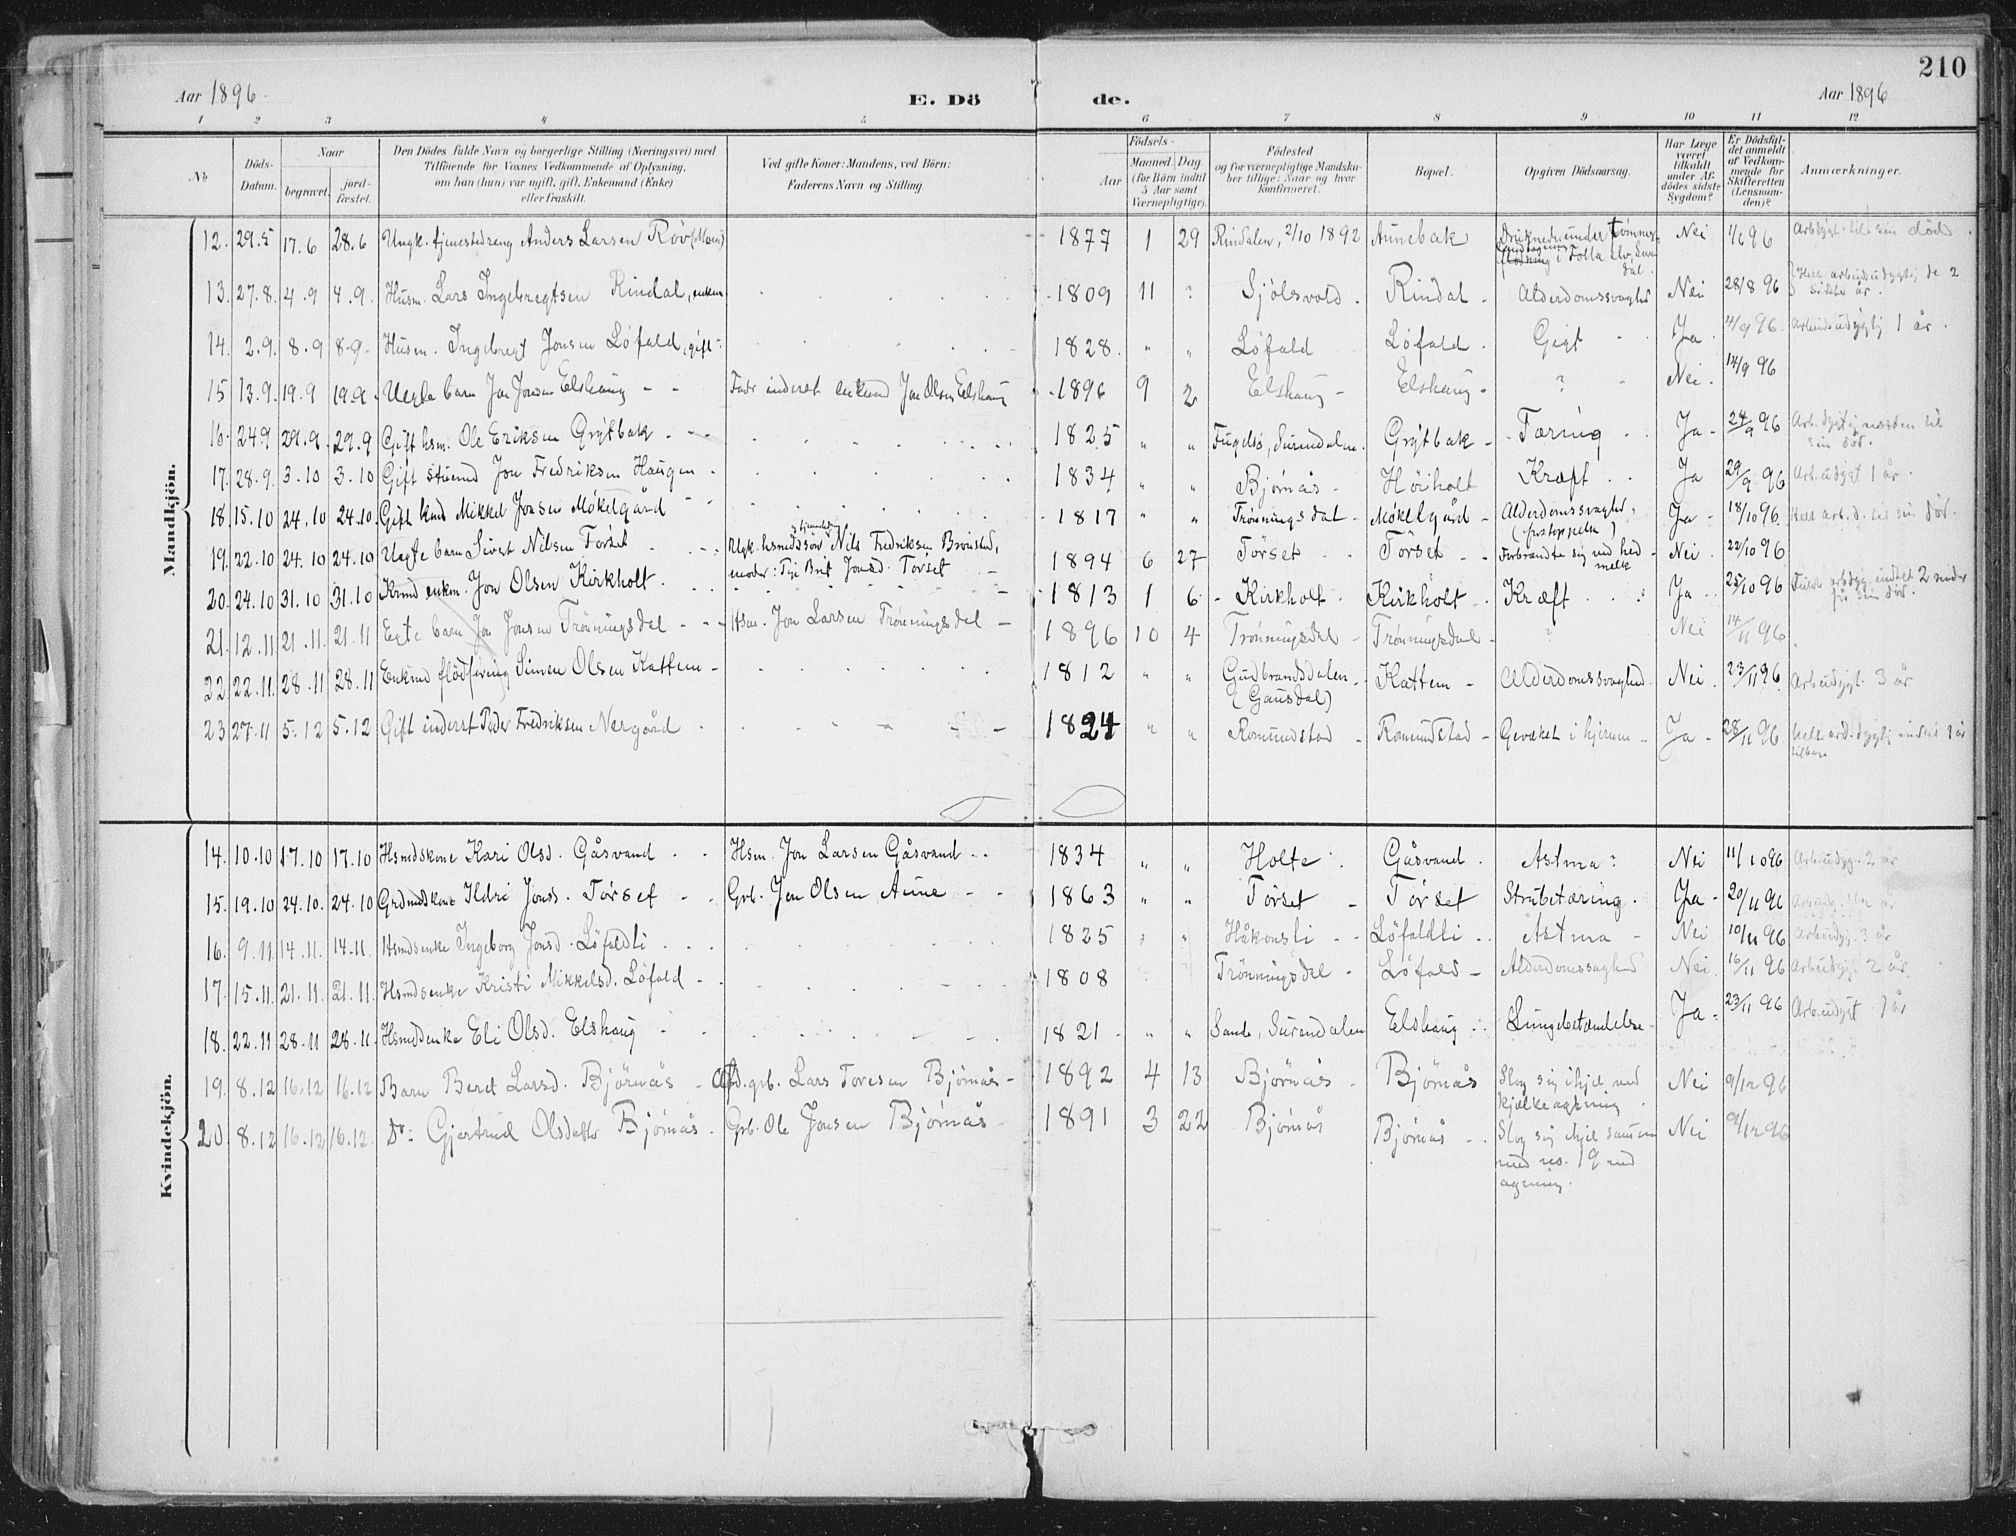 210
Aar 1896
E. Dö de.
Aar 1896
1 2 3 4 5 6 7 8 9 10 11 12
No
Döds-Datum.
Naar
begravet.
jord-fæstet.
Den Dödes fulde Navn og borgerlige Stilling (Næringsvei) med
Tilföiende for Voxnes Vedkommende af Oplysning,
om han (hun) var ugift, gift, Enkemand (Enke)
eller fraskilt.
Ved gifte Koner: Mandens, ved Börn:
Faderens Navn og Stilling.
Födsels-
Aar
Maaned. Dag.
(for Börn indtil
5 Aar samt
Værnepligtige).
Födested
og for værnepligtige Mandska-
ber tillige: Naar og hvor
konfirmeret.
Bopæl.
Opgiven Dödsaarsag.
Har Læge
været
tilkaldt
under Af-
dödes sidste
Sygdom?
Er Dödsfal-
det anmeldt
af Vedkom-
mende for
Skifteretten
(Lensman-
den)?
Anmærkninger.
Mandkjön.
12. 29.5 17.6 28.6 Ungk. tjenestedreng Anders Larsen Röv (Moen) 1877 1 29 Rindalen, 2/10 1892 Aunebak Druknede under tömmer- i Folla Elv, Nei 1/6 96 til sin död.
13. 27.8. 4.9 4.9. Husm. Lars Ingebregtsen Rindal, enkem 1809 11 ? Sjölsvold. Rindal Alderdomssvaghed Nei 28/8 96 Helt arbeidsudygtig de 2 sidste år.
14. 2.9. 8.9 8.9. Husm. Ingebregt Jonsen Löfald, gift 1828. " " Löfald Löfald. Gigt Ja. 4/9 96. Arbeidsudygtig 1 år.
15 13.9. 19.9 19.9. Uegte barn Jon Jonsen Elshaug Fadr inderst enkmd Jon Olsen Elshaug 1896 9 2 Elshaug Elshaug ? Nei. 14/9 96
16. 24.9 29.9. 29.9 Gift hsm. Ole Eriksen Grytbak 1825 " " Fugelsö, Surendalen. Grytbak Tæring Ja 24/9 96 Arb.dygtig næsten til sin död.
17. 28.9. 3.10 3.10 Gift Jon Fredriksen Haugen 1834 " " Bjørnås Höiholt Kræft Ja 29/9 96 Arb.udygt 1 år.
18. 15.10 24.10 24.10. Gift Mikkel Jonsen Møkelgård 1817 " " Trønningsdal Møkelgård Alderdomssvaghed, Ja 18/10 96. til sin död.
19. 22.10 24.10 24.10 Uegte barn Sivert Nilsen Tørset Ugk. hsmandssøn Nils Fredriksen Brønstad, moder: Brit Jonsd. Tørset 1894 6 27 Tørset Tørset Forbrændte sig ved hed melk Nei. 22/10 96
20. 24.10 31.10 31.10 enkem. Jon Olsen Kirkholt. 1813 1 6 Kirkholt Kirkholt Kræft Ja 25/10 96 indtil 2 för sin död.
21. 12.11 21.11. 21.11 Egte barn Jon Jonsen Trønningsdal Hsm. Jon Larsen Trønningsdal 1896 10 4 Trønningsdal Trønningsdal ? Nei 14/11 96
22. 22.11. 28.11 28.11 Enkmd flödføring Simen Olsen Kattem 1812 " " Gudbrandsdalen (Gausdal) Kattem Alderdomssvaghed Nei. 23/11 96 Arb.udygt 3 år
23 27.11 5.12 5.12 Gift inderst Peder Fredriksen Nergård 1824 " " Romundstad Romundstad i hjernen Ja 28/11 96 indtil 1 år
Kvindekjön.
14. 10.10 17.10 17.10 Hsmdskone Kari Olsd. Gåsvand Hsm. Jon Larsen Gåsvand 1834 " " Holte Gåsvand. Astma Nei 11/10 96 Arb.udyg. 2 år
15. 19.10 24.10. 24.10 Grdmdskone Ildri Jonsd. Tørset Grb. Jon Olsen Aune 1863 " " Tørset Tørset Strubetæring. Ja 20/11 96
16. 9.11 14.11. 14.11. Hsmdsenke Ingeborg Jonsd. Löfaldli 1825 " " Håkonsli Löfaldli Astma Nei 10/11 96 Arb.udyg. 3 år
17. 15.11. 21.11. 21.11. Hsmdsenke Kristi Mikkelsd. Löfald 1808 Trønningsdal Löfald Alderdomssvaghed Nei 16/11 96 Arb.udygt. 2 år
18. 22.11 28.11 28.11. Hsmdsenke Eli Olsd. Elshaug 1821 " " Sande, Surendalen Elshaug Lungebetændelse Ja 23/11 96 Arb.udygt 1 år
19. 8.12 16.12 16.12 Barn Beret Larsd. Bjørnås Afd. grb. Lars Toresen Bjørnås 1892 4 13 Bjørnås Bjørnås Slog sig ihjel ved kjælkeagening Nei 9/12 96
20. 8.12 16.12 16.12 Do: Gjertrud Olsdatter Bjørnås Grb. Ole Jonsen Bjørnås 1891 3 22 Bjørnås Bjørnås Slog sig ihjel sammen med no. 19 ved agening. Nei 9/12 96